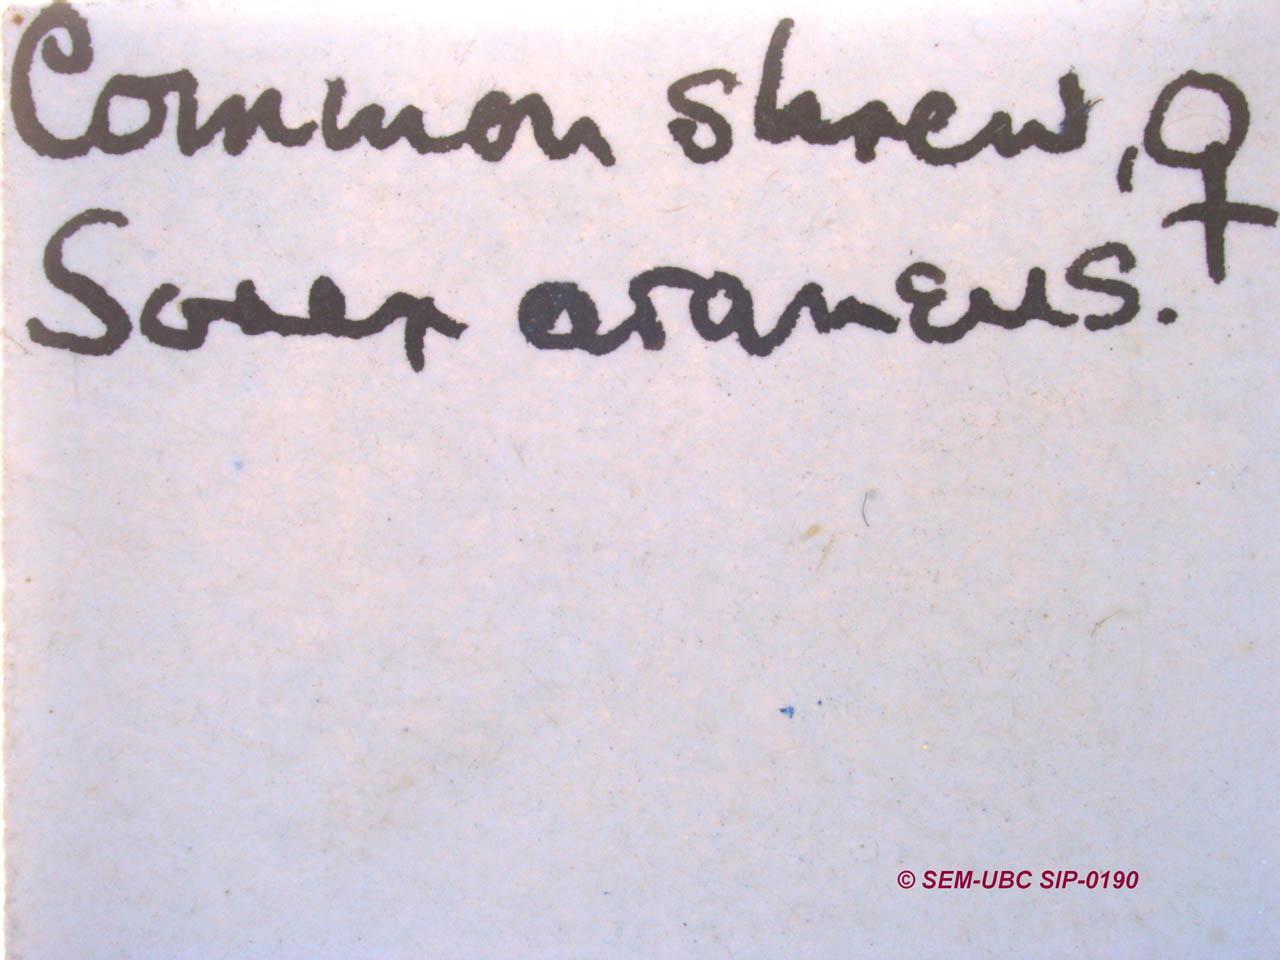 Common shrew, ♀
Sorex araneus.
© SEM-UBC SIP-0190